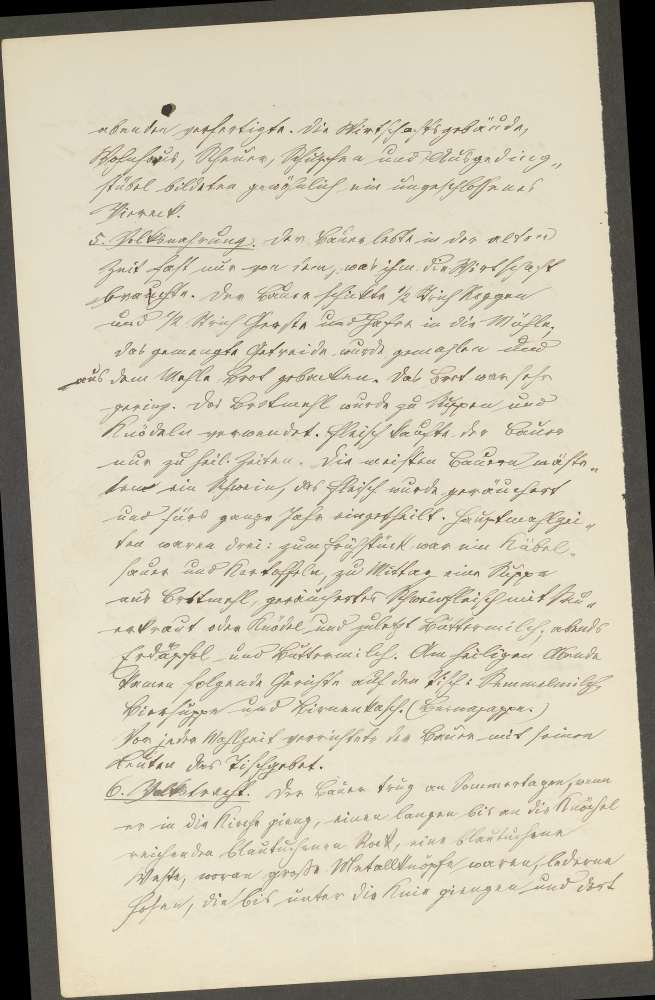 abenden verfertigte. Die Wirtschaftsgebäude,
Wohnhaus, Scheuer, Schupfen und Ausgeding„
stübel bildeten gewöhnlich ein ungeschlossenes
Viereck.
5. Volksnahrung. Der Bauer lebte in der alten
Zeit fast nur von dem, was ihm die Wirtschaft
brachte. Der Bauer schickte ½ Strich Roggen
und ½ Strich Gerste und Hafer in die Mühle.
Das gemengte Getreide wurde gemahlen und
aus dem Mehle Brot gebacken. Das Brot war sehr
gering. Das Brotmehl wurde zu Suppen und
Knödeln verwendet. Fleisch kaufte der Bauer
nur zu heil. Zeiten. Die meisten Bauern mäste„
ten ein Schwein, das Fleisch wurde geräuchert
und fürs ganze Jahr eingetheilt. Hauptmahlzei„
ten waren drei: zum Frühstück war ein Kübel„
sauer und Kartoffeln, zu Mittag eine Suppe
aus Brotmehl, geräuchertes Schweinfleisch mit Sau„
erkraut oder Knödel und zuletzt Buttermilch, abends
Erdäpfel und Buttermilch. Am heiligen Abende
kamen folgende Gerichte auf den Tisch: Semmelmilch,
Biersuppe und Birnenkasch. (Bernapappe.)
Vor jeder Mahlzeit verrichtete der Bauer mit seinen
Leuten das Tischgebet.
6. Volkstracht. Der Bauer trug an Sommertagen, wenn
er in die Kirche gieng, einen langen bis an die Knöchel
reichenden blautuchenen Rock, eine blautuchene
Weste, woran große Metallknöpfe waren, lederne
Hosen, die bis unter die Knie giengen und dort